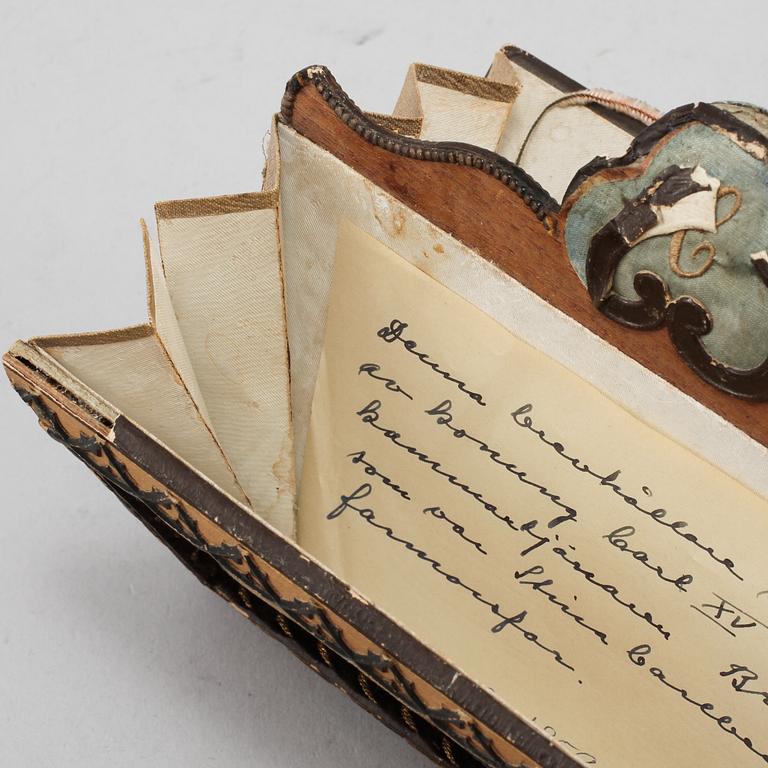 Denna brevhållare
av konung Carl XV
kammartjänaren
som var Stina
farmorsfar.